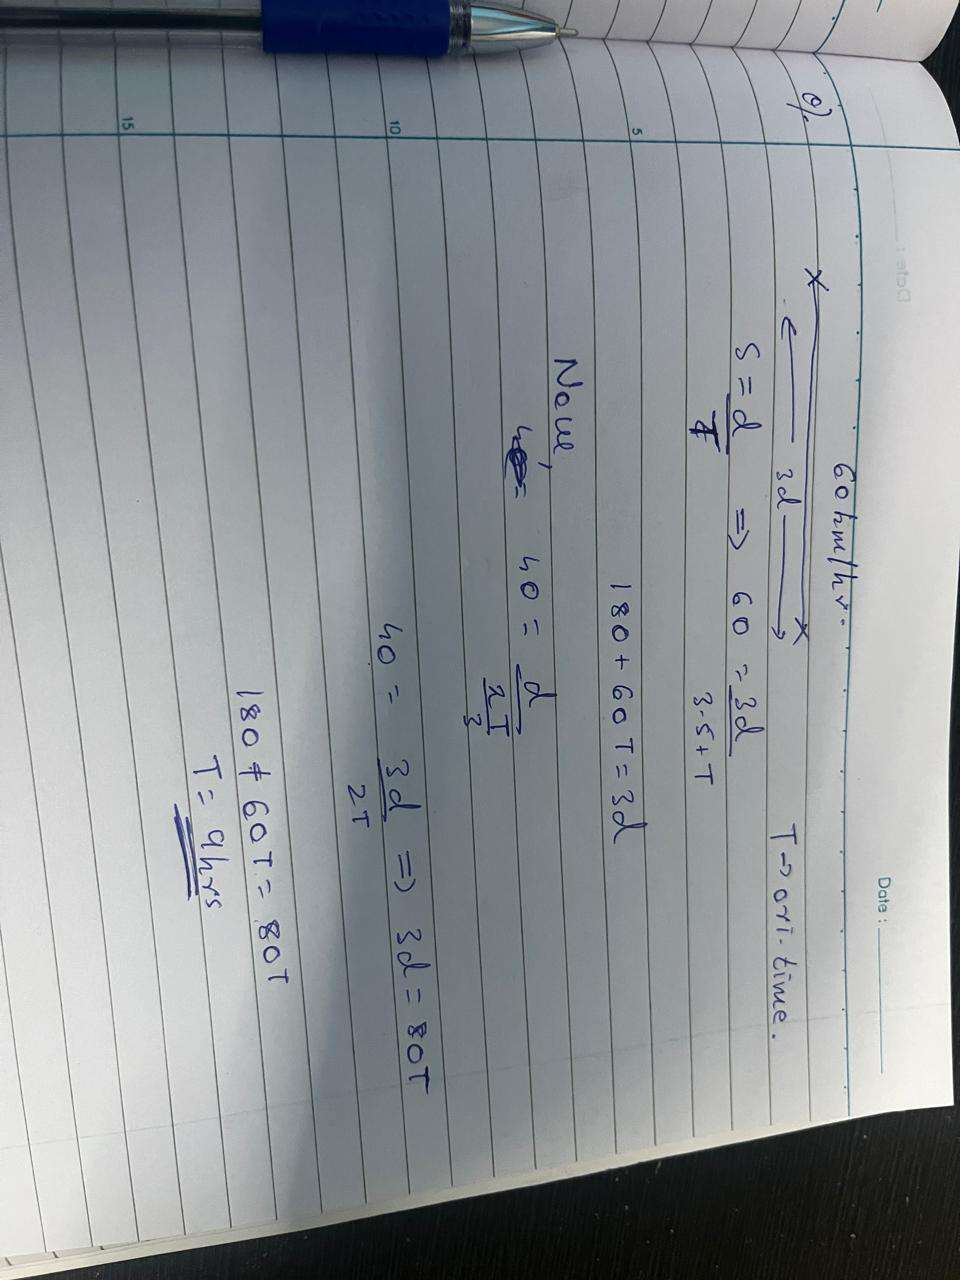 Date :
Date :
Q/.
60 km/hr.
3d
T → ori. time.
S = d/T => 60 = 3d/3.5+T
5
180 + 60T = 3d
Now,
40 = d/2T/3
10
40 = 3d/2T => 3d = 80T
180 + 60T = 80T
T = 9hrs
15